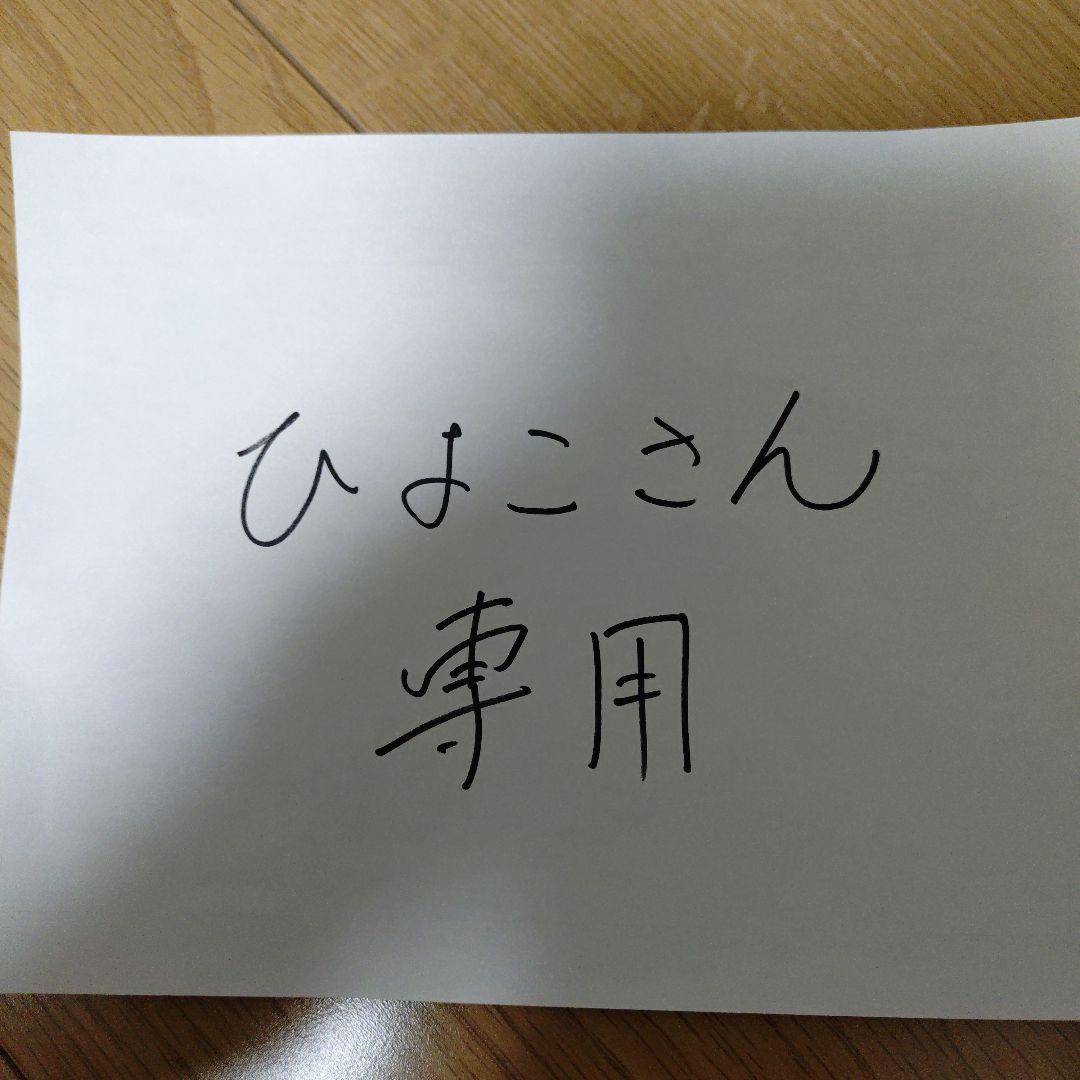 ひよこさん
専用